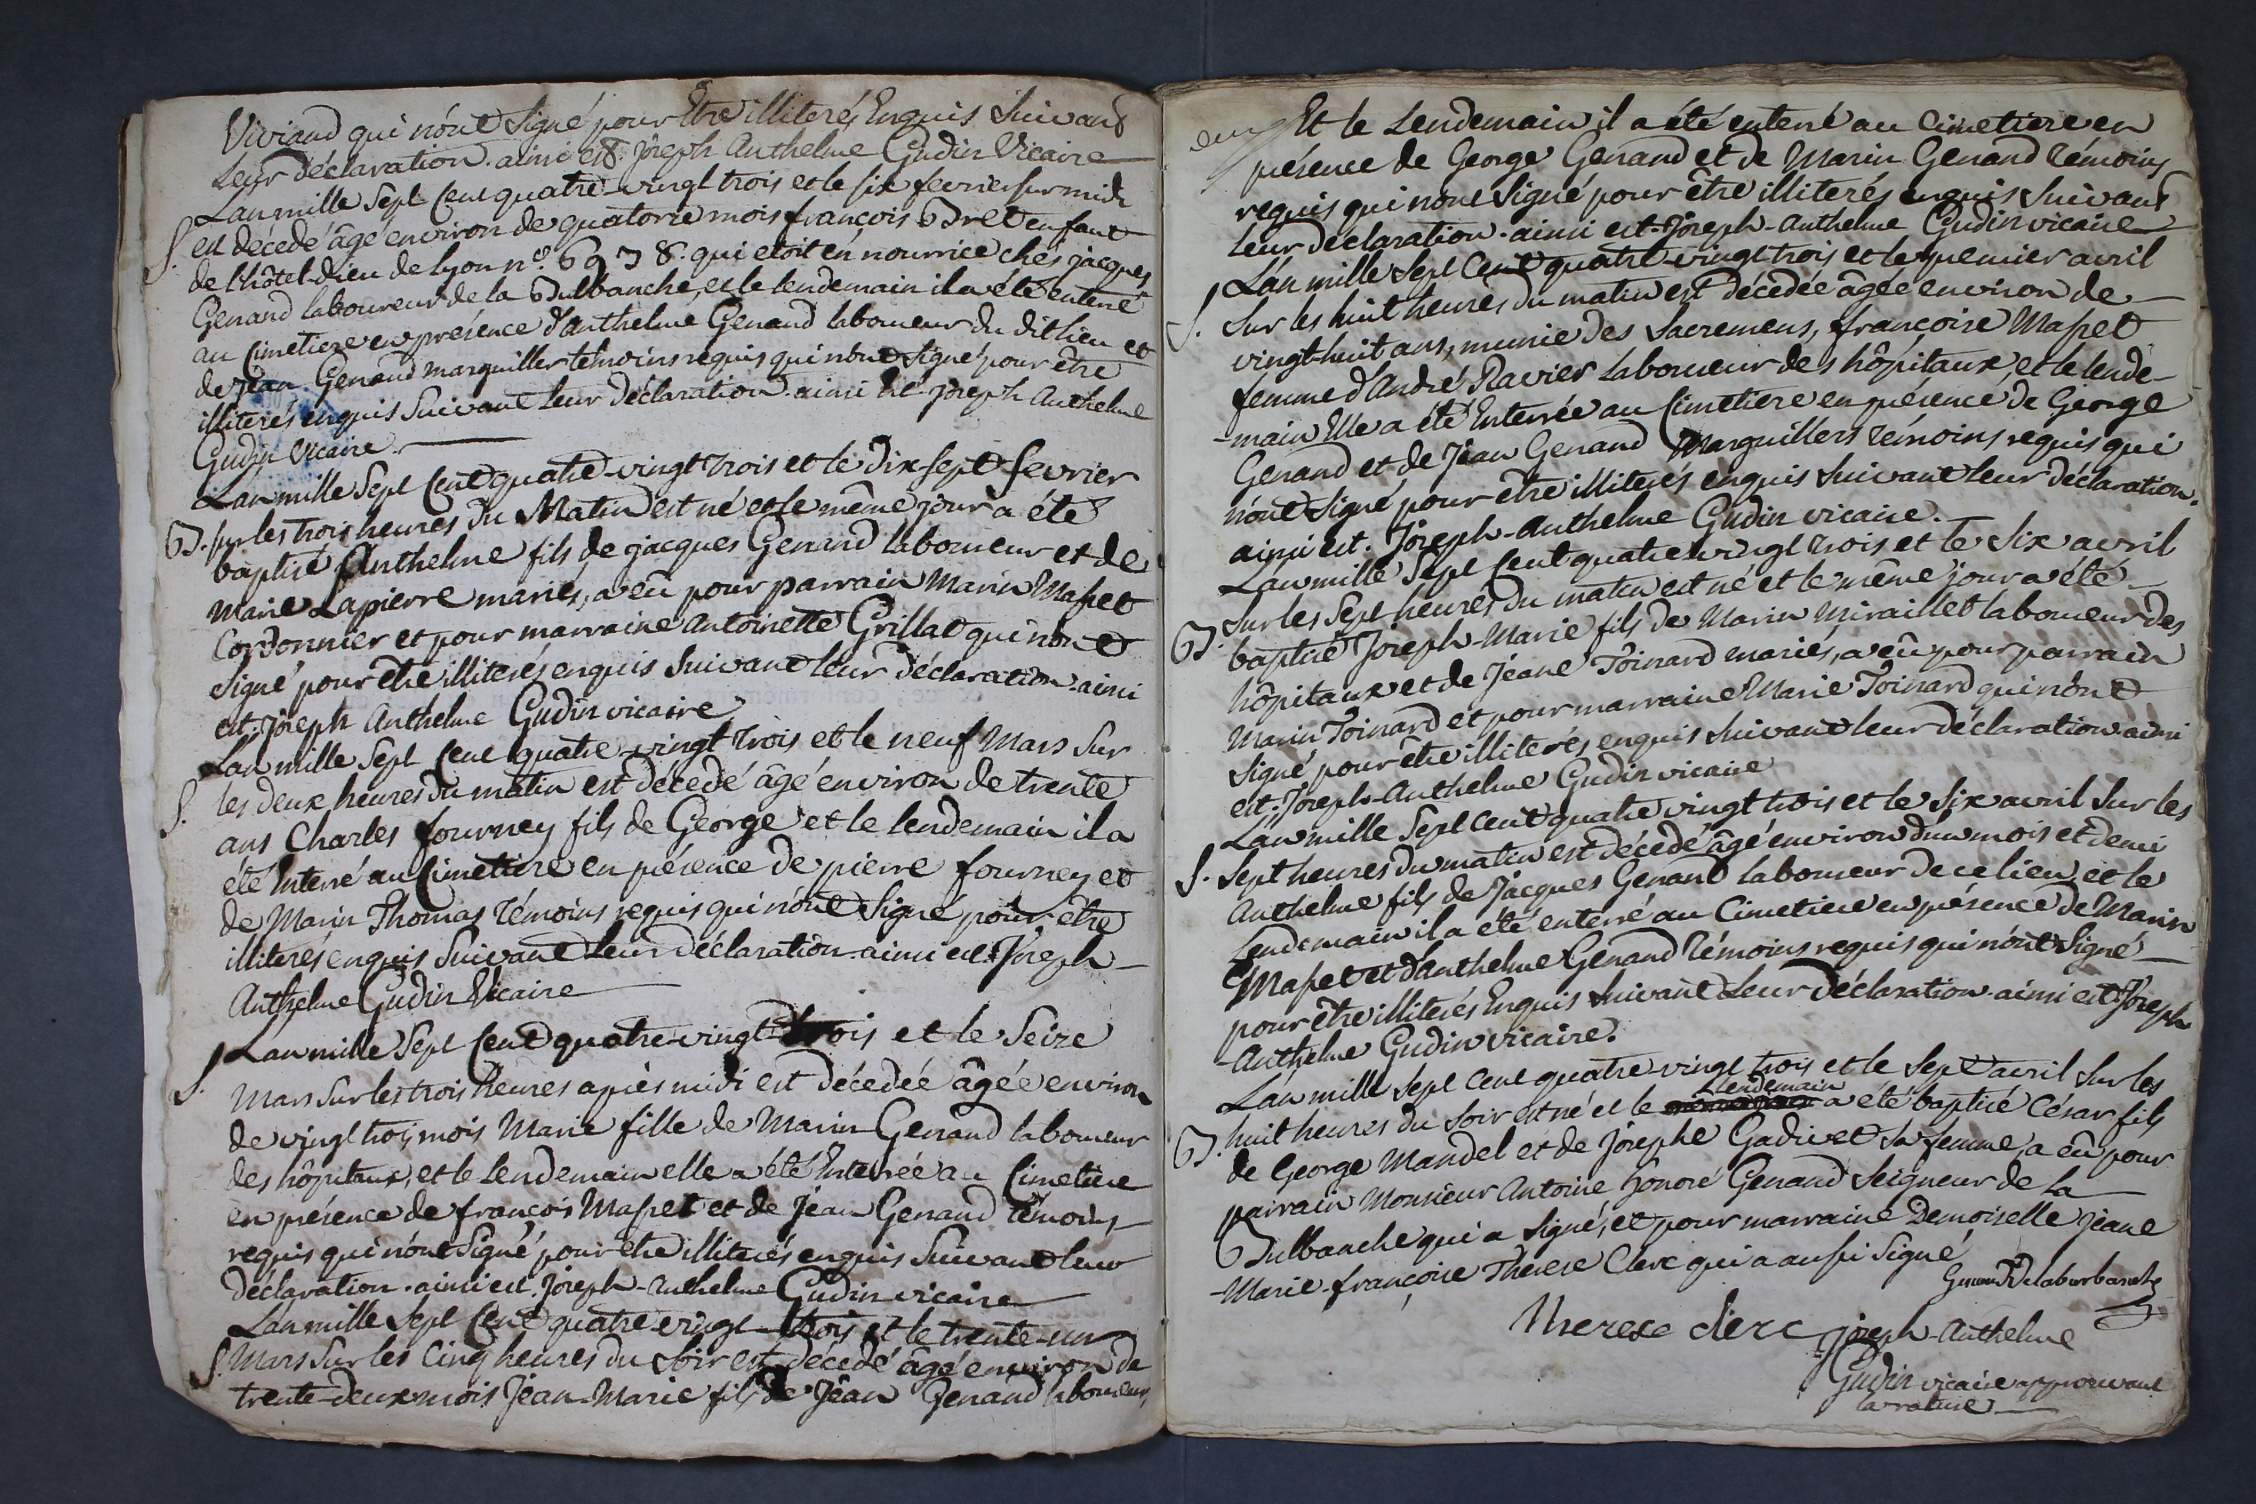 Viviand qui n'ont signé pour être illiterés Enquis suivant
leur déclaration. ainsi est. Joseph Anthelme Gudin Vicaire
L'an mille sept cent quatre-vingt trois et le six fevrier sur midi
S. est décedé âgé environ de quatorze mois françois Bret enfant
de l'hôtel-dieu de lyon n.° 6978. qui etoit en nourrice chés jacques
Genand laboureur de la Bulbanche, et le lendemain il a été enterré
au Cimetiere en présence d'anthelme Genand laboureur du dit lieu et
de jean Genand marguiller témoins requis qui n'ont signé pour être
illiterés enquis suivant leur déclaration. ainsi est. joseph Anthelme
Gudin Vicaire
L'an mille sept cent quatre-vingt trois et le dix-sept fevrier
B. sur les trois heures du Matin est né et le même jour a été
baptisé Anthelme fils de jacques Genand laboureur et de
Marie Lapierre mariés, a eû pour parrain Marin Masset
Cordonnier et pour marraine Antoinette Grillat qui n'ont
signé pour être illiterés enquis suivant leur déclaration. ainsi
est. joseph Anthelme Gudin vicaire
L'an mille sept cent quatre-vingt trois et le neuf Mars sur
S. les deux heures du matin est décedé âgé environ de trente
ans Charles fourney fils de George et le lendemain il a
été Enterré au Cimetiere en présence de pierre fourney et
de Marin Thomas témoins requis qui n'ont signé pour être
illiterés enquis suivant leur déclaration. ainsi est. Joseph
Anthelme Gudin Vicaire
L'an mille sept cent quatre-vingt trois et le seize
S. Mars sur les trois heures après midi est décedée âgée environ
de vingt trois mois Marie fille de Marin Genand laboureur
des hôpitaux, et le lendemain elle a été Enterrée au Cimetiere
en présence de françois Masset et de Jean Genand témoins
requis qui n'ont signé pour etre illiterés enquis suivant leur
déclaration. ainsi est. joseph-anthelme Gudin vicaire
L'an mille sept cent quatre-vingt-trois et le trente-un
S. Mars sur les cinq heures du soir est décedé âgé environ de
trente-deux mois Jean-Marie fils de Jean Genand laboureur,
Et le Lendemain il a été enterré au Cimetiere en
présence de George Genand et de Marin Genand témoins
requis qui n'ont signé pour être illiterés enquis suivant
leur déclaration. ainsi est. Joseph-anthelme Gudin vicaire
L'an mille sept cent quatre-vingt trois et le premier avril
S. sur les huit heures du matin est décedée âgée environ de
vingt-huit ans, munie des Sacremens, françoise Masset
femme d'André Ravier laboureur des hôpitaux, et le lende-
-main Elle a été Enterrée au Cimetiere en présence de George
Genand et de Jean Genand Marguillers témoins requis qui
n'ont signé pour être illiterés enquis suivant leur déclaration.
ainsi est. Joseph-anthelme Gudin vicaire.
L'an mille sept cent quatre vingt trois et le six avril
sur les sept heures du matin est né et le même jour a été
B. baptisé Joseph-Marie fils de Marin Miraillet laboureur des
hôpitaux et de Jéane Toinard mariés, a eû pour parrain
Marin Toinard et pour marraine Marie Toinard qui n'ont
signé pour être illiterés enquis suivant leur déclaration ainsi
est. Joseph-Anthelme Gudin vicaire
L'an mille sept cent quatre vingt trois et le six avril sur les
S. sept heures du matin est décedé âgé environ d'un mois et demi
Anthelme fils de Jacques Genand laboureur de ce lieu, et le
Lendemain il a été enterré au Cimetiere en présence de Marin
Masset et d'anthelme Genand témoins requis qui n'ont signé
pour être illiterés Enquis suivant leur déclaration. ainsi est. Joseph
-Anthelme Gudin vicaire.
L'an mille sept cent quatre vingt trois et le sept avril sur les
Lendemain
B. huit heures du soir est né et le a été baptisé César fils
de George Mandel et de Josephe Gadivet sa femme, a eû pour
parrain Monsieur Antoine honoré Genand seigneur de La
Bulbanche qui a signé, et pour marraine Demoiselle Jeane
-Marie-françoise Thérèse Clerc qui a aussi signé
Genand Delaburbanche
Therese clerc joseph-Anthelme
Gudin vicaire approuvant
la rature